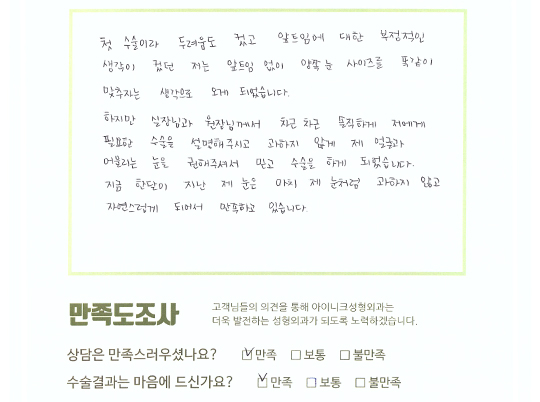 첫 수술이라 두려움도 컸고 앞트임에 대한 부정적인
생각이 컸던 저는 앞트임 없이 양쪽 눈 사이즈를 똑같이
맞추자는 생각으로 오게 되었습니다.
하지만 실장님과 원장님께서 차근차근 솔직하게 저에게
필요한 수술을 설명해주시고 과하지 않게 제 얼굴과
어울리는 눈을 권해주셔서 믿고 수술을 하게 되었습니다.
지금 한달이 지난 제 눈은 마치 제 눈처럼 과하지 않고
자연스럽게 되어서 만족하고 있습니다.
만족도조사
고객님들의 의견을 통해 아이니크성형외과는
더욱 발전하는 성형외과가 되도록 노력하겠습니다.
상담은 만족스러우셨나요? ☑만족 □보통 □불만족
수술결과는 마음에 드신가요? ☑만족 □보통 □불만족